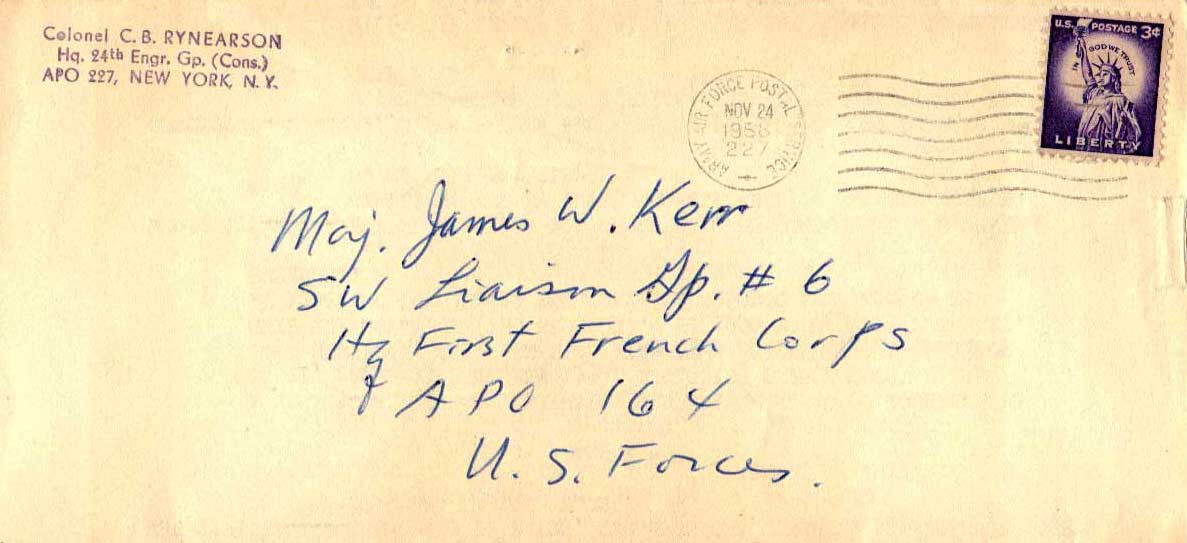 Colonel C. B. RYNEARSON
Hq. 24th Engr. Gp. (Cons.)
APO 227, NEW YORK, N. Y.
ARMY AIR FORCE POSTAL SERVICE
NOV 24
1956
227
U.S. POSTAGE 3¢
IN GOD WE TRUST
LIBERTY
Maj. James W. Kerr
SW Liaison Gp. # 6
Hq First French Corps
APO 164
U. S. Forces.